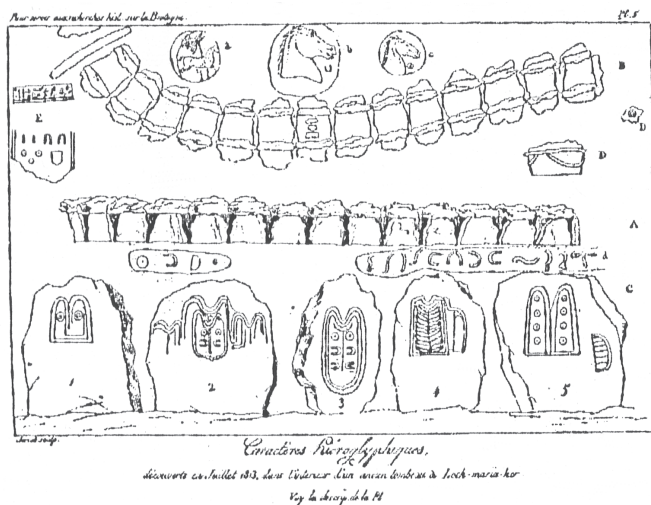 Pour servir aux recherches hist. sur la Bretagne.
Pl. 5
a
b
c
B
E
D
D
A
d
C
1
2
3
4
5
sculp.
Caractères Hiéroglyphiques,
découverts en Juillet 1813, dans l'intérieur d'un ancien tombeau de Lock-maria-ker
Voy. la descrip. de la Pl.